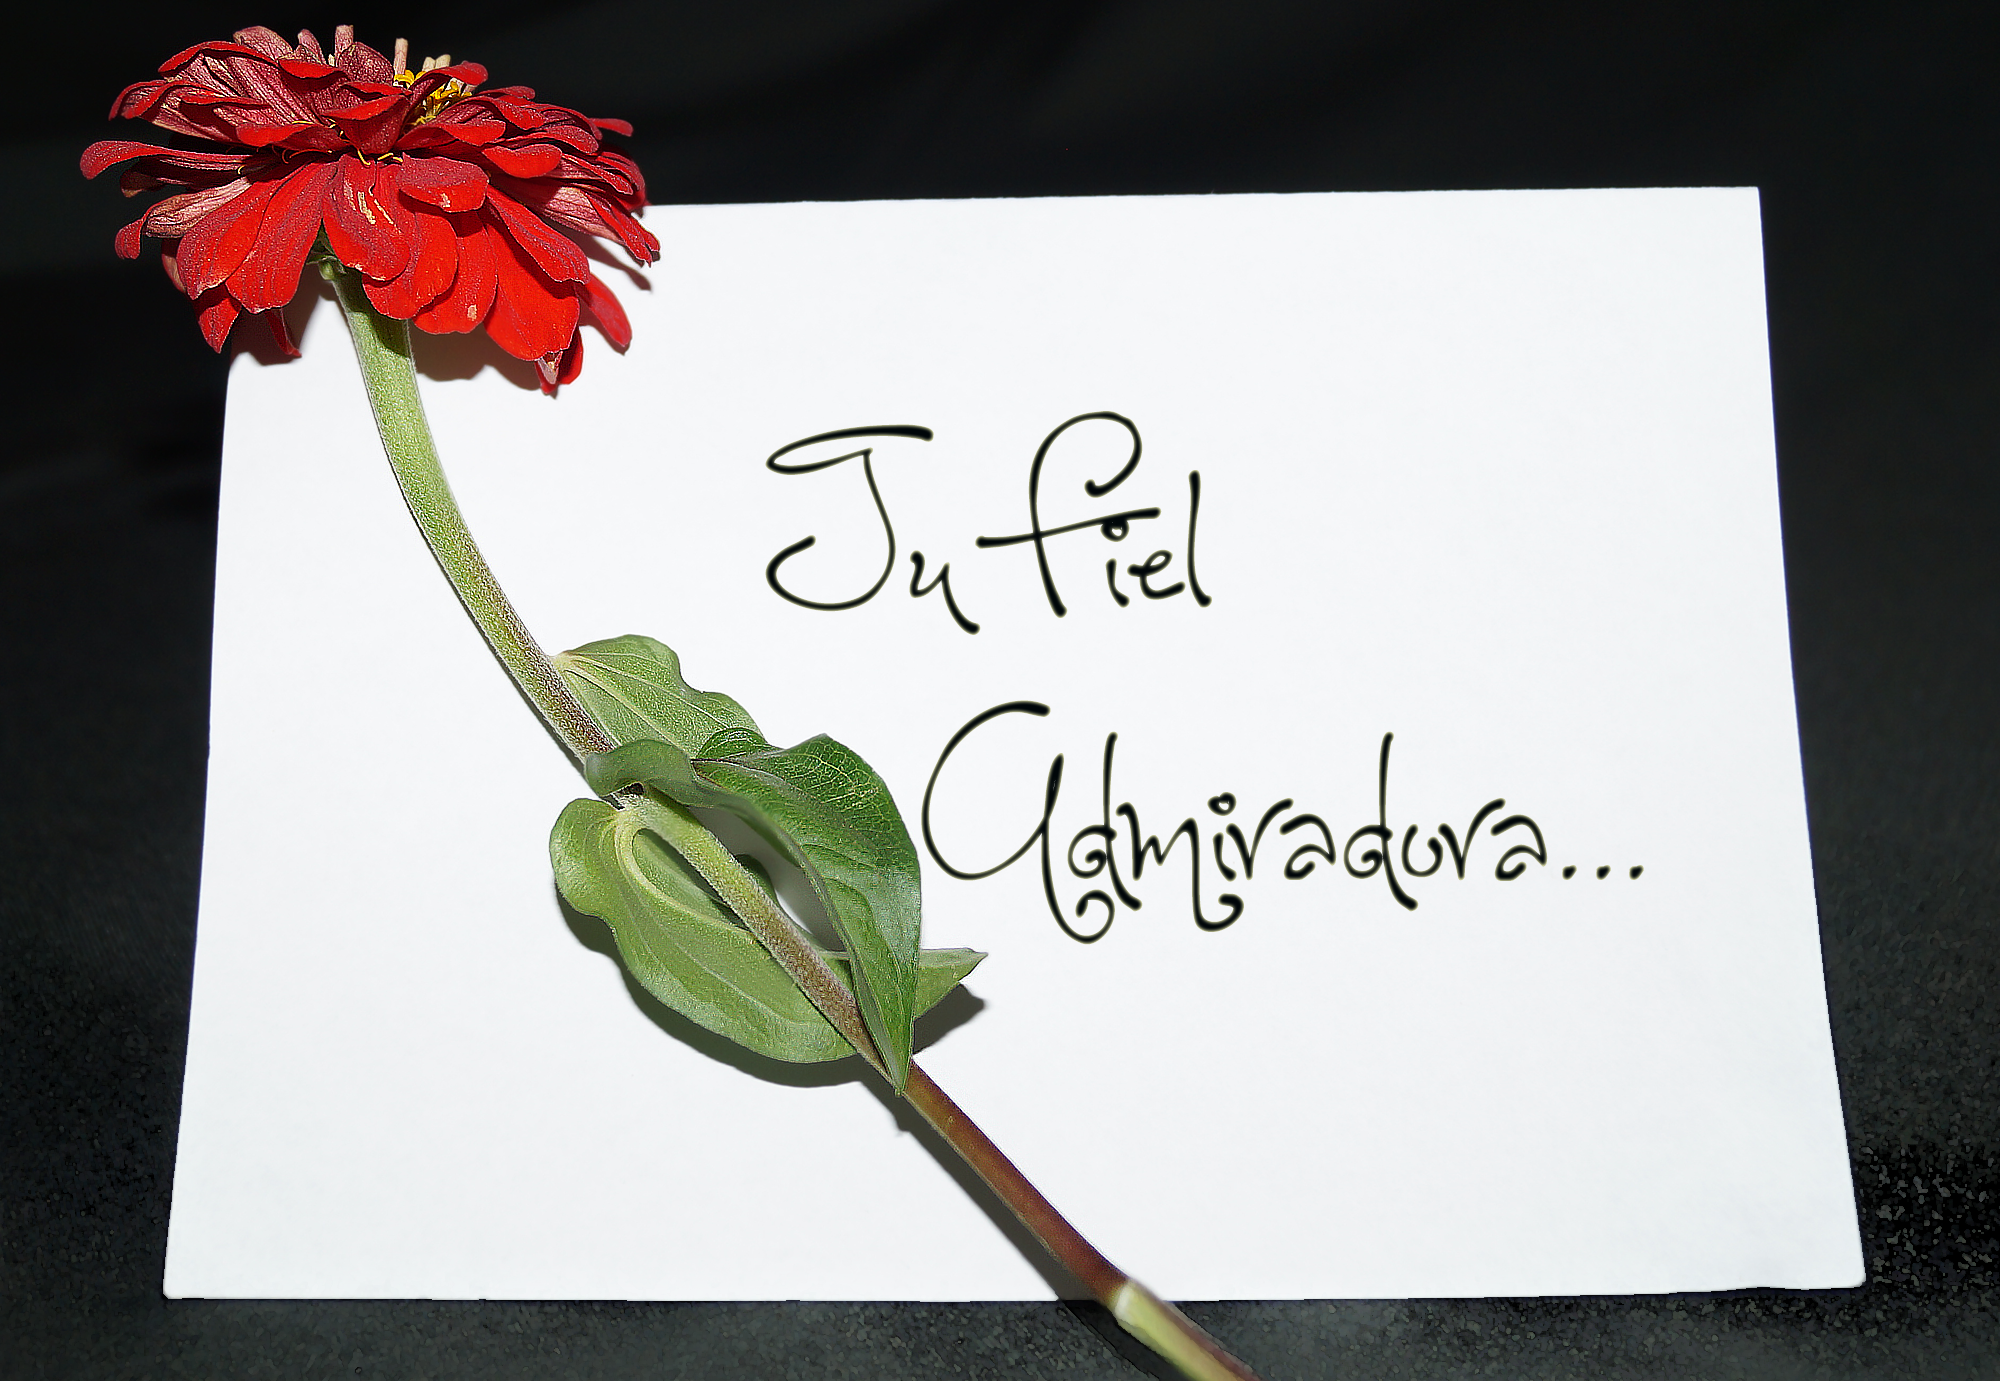 Tu fiel
Admiradora...